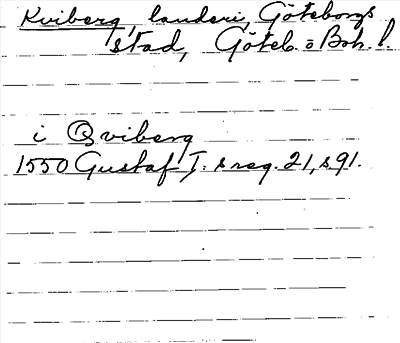 Kviberg, landeri, Göteborgs
stad, Göteb. o Boh. l.
i Qviberg
1550 Gustaf I:s reg. 21, s 91.